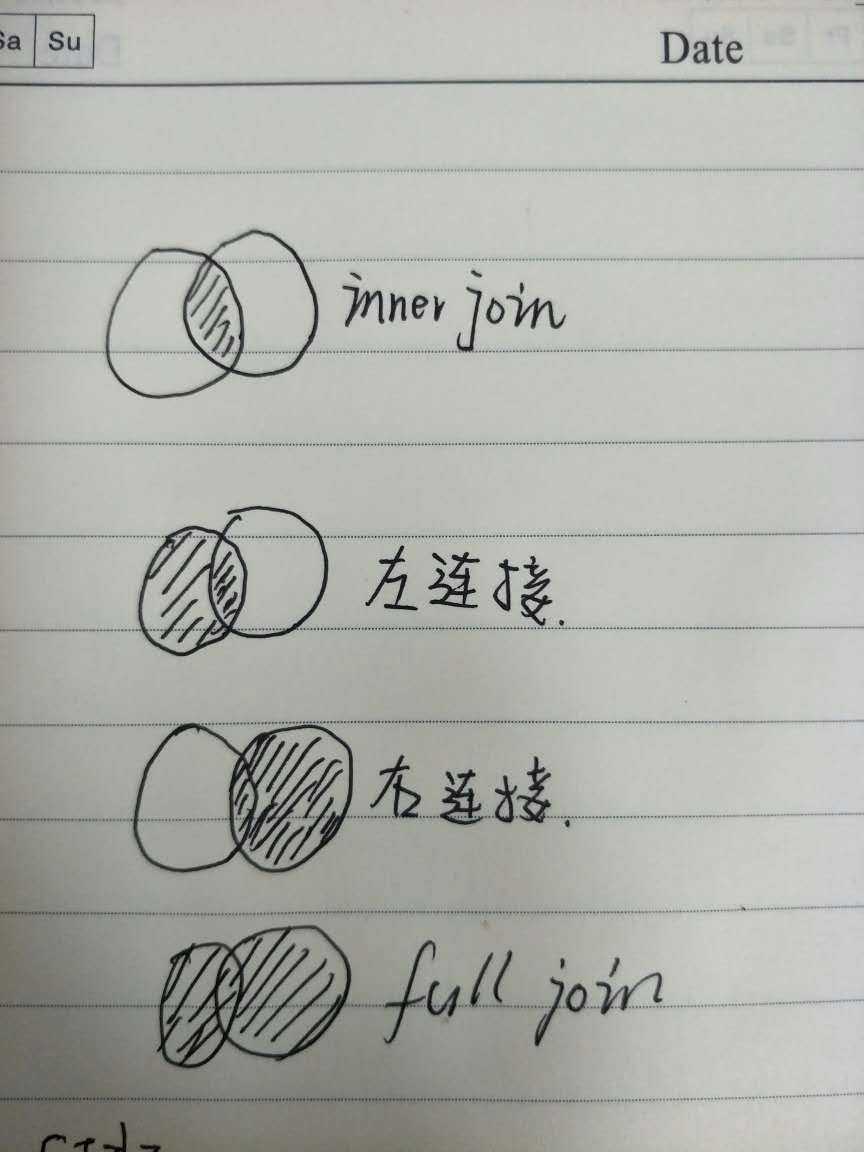 Sa Su Date
inner join
左连接.
右连接.
full join